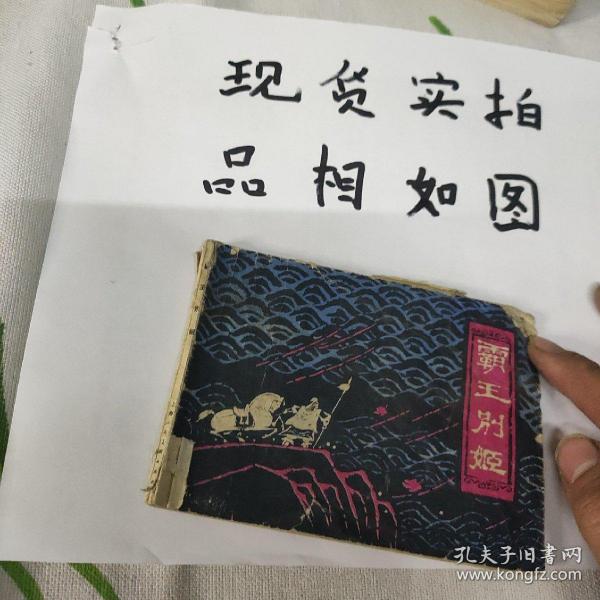 现货实拍
品相如图
霸王别姬
孔夫子旧书网
www.kongfz.com